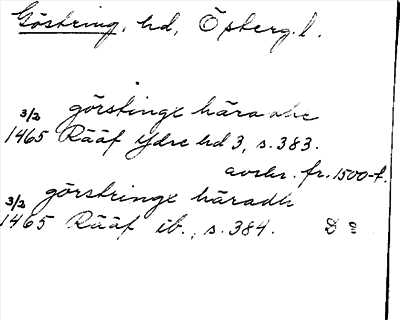 Göstring, hd, Österg. l.
görstinge häradhe
3/2
1465 Rääf Ydre hd 3, s. 383.
avskr. fr. 1500-t.
görstringe häradh
3/2
1465 Rääf ib., s. 384. D 2